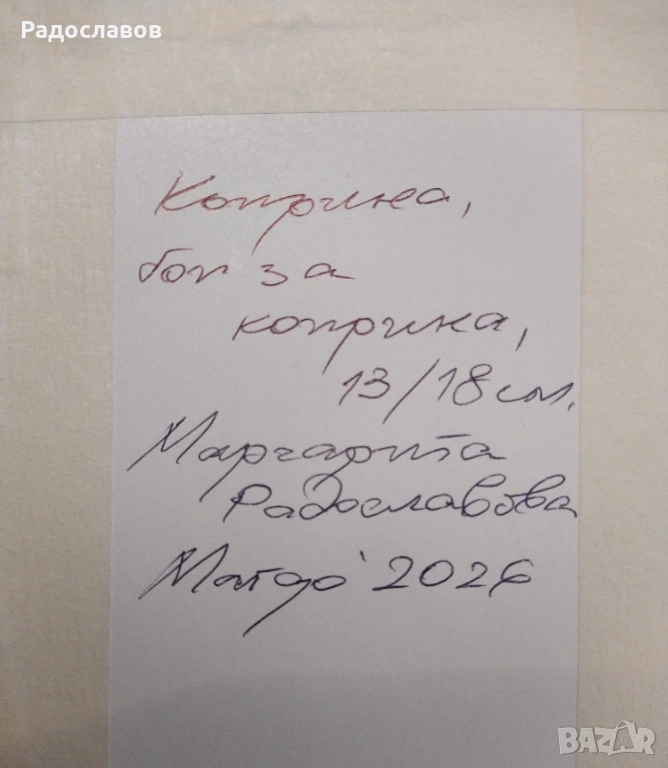 Радославов
Коприна,
боп за
коприна,
13/18 см.
Маргарита
Радославова
2026
BAZAR